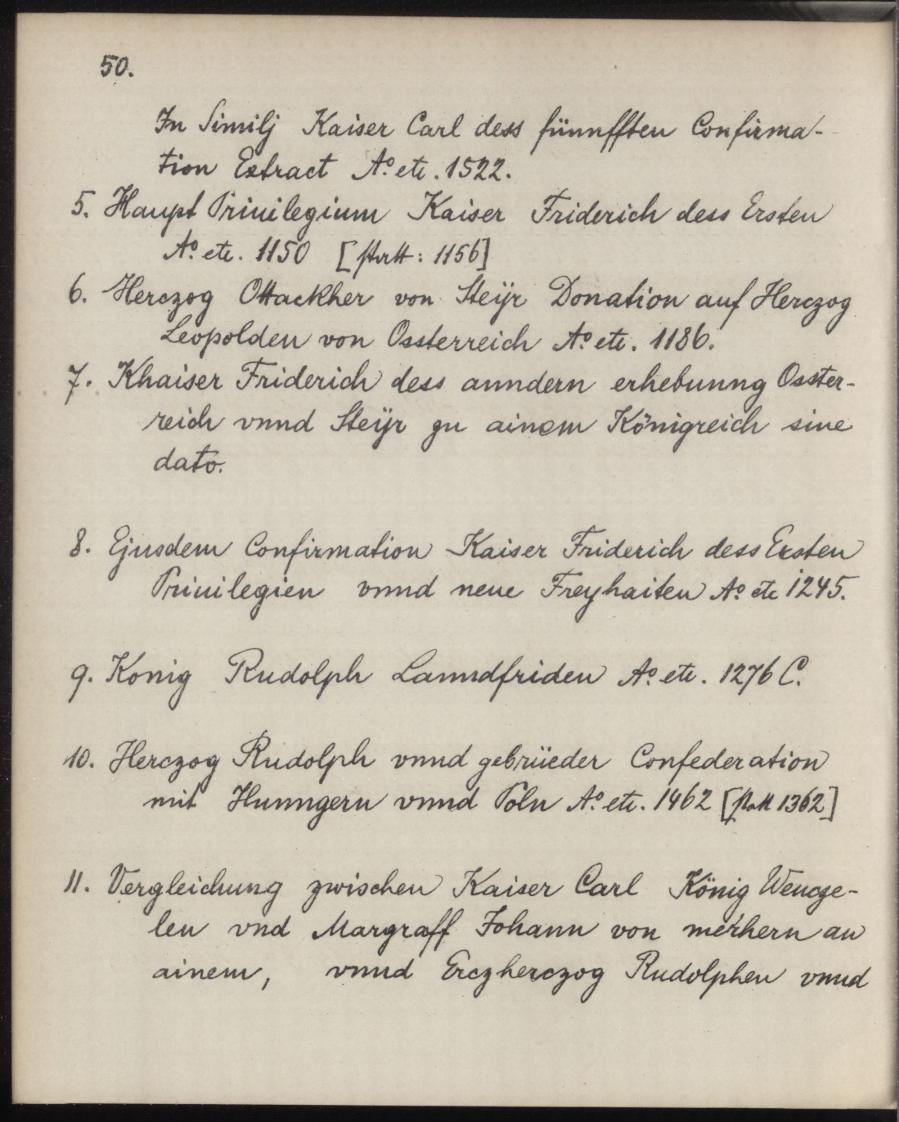 50.
In Similj Kaiser Carl dess fünnfften Confirma-
tion Extract Ao. etc. 1522.
5. Haupt Priuilegium Kaiser Friderich dess Ersten
Ao. etc. 1150 [statt: 1156]
6. Herczog Ottackher von Steÿr Donation auf Herczog
Leopolden von Ossterreich Ao. etc. 1186.
7. Khaiser Friderich dess anndern erhebunng Osster-
reich vnnd Steÿr zu ainem Königreich sine
dato.
8. Ejusdem Confirmation Kaiser Friderich dess Ersten
Priuilegien vnnd neue Freyhaiten Ao. etc 1245.
9. König Rudolph Lanndfriden Ao. etc. 1276 C.
10. Herczog Rudolph vnnd gebrüeder Confederation
mit Hunngern vnnd Poln Ao. etc. 1462 [statt 1362]
11. Vergleichung zwischen Kaiser Carl König Wencze-
len vnd Margraff Johann von merhern an
ainem, vnnd Erczherczog Rudolphen vnnd